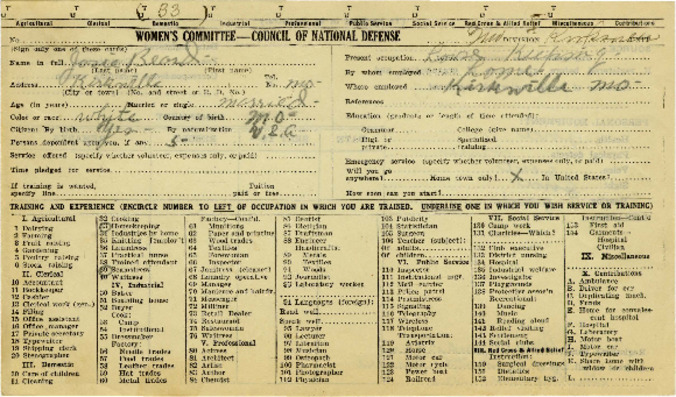 Agricultural Clerical Domestic Industrial Professional Public Service Social Service Red Cross & Allied Relief Miscellaneous Contributions
(33)
No. WOMEN'S COMMITTEE—COUNCIL OF NATIONAL DEFENSE Mo DIVISION
(Sign only one of these cards)
Name in full Josie
(Last name) (First name)
Address Kirkville No. Mo-
(City or town) (No. and street or R. D. No.)
Age (in years) Married or single married-
Color or race Whyte Country of birth M.O-
Citizen: By birth yes- By naturalization U.S.A
Persons dependent upon you, if any 5-
Service offered (specify whether volunteer, expenses only, or paid)
Time pledged for service
If training is wanted, Tuition
specify line paid or free
Present occupation
By whom employed
Where employed Kirkville Mo-
References
Education (graduate or length of time attended):
Grammar College (give name)
High or Specialized
private training
Emergency service (specify whether volunteer, expenses only, or paid)
Will you go
anywhere? Home town only? X In United States?
How soon can you start?
TRAINING AND EXPERIENCE (ENCIRCLE NUMBER TO LEFT OF OCCUPATION IN WHICH YOU ARE TRAINED. UNDERLINE ONE IN WHICH YOU WISH SERVICE OR TRAINING)
I. Agricultural
1 Dairying
2 Farming
3 Fruit raising
4 Gardening
5 Poultry raising
6 Stock raising
II. Clerical
10 Accountant
11 Bookkeeper
12 Cashier
13 Clerical work (gen.)
14 Filing
15 Office assistant
16 Office manager
17 Private secretary
18 Typewriter
19 Shipping clerk
20 Stenographer
III. Domestic
30 Care of children
31 Cleaning
32 Cooking
33 Housekeeping
34 Industries by home
35 Knitting
36 Laundress
37 Practical nurse
38 Trained attendant
39 Seamstress
40 Waitress
IV. Industrial
50 Baker
51 Boarding house
52 Buyer
Cook:
53 Camp
54 Institutional
55 Dressmaker
Factory:
56 Needle trades
57 Food trades
58 Leather trades
59 Hat trades
60 Metal trades
Factory—Cont'd.
61 Munitions
62 Paper and printing
63 Wood trades
64 Textiles
65 Forewoman
66 Inspector
67 Janitress
68 Laundry operative
69 Manager
70 Manicure and hairdr.
71 Messenger
72 Milliner
73 Retail Dealer
74 Restaurant
75 Saleswoman
76 Waitress
V. Professional
80 Actress
81 Architect
82 Artist
83 Author
84 Chemist
85 Dentist
86 Dietician
87 Draftsman
88 Engineer
Handicrafts:
89 Metals
90 Textiles
91 Woods
92 Journalist
93 Laboratory worker
94 Languages (foreign):
Read well
Speak well
95 Lawyer
96 Lecturer
97 Librarian
98 Musician
99 Osteopath
100 Pharmacist
101 Photographer
102 Physician
103 Publicity
104 Statistician
105 Surgeon
106 Teacher (subject):
Of adults
Of children
VI. Public Service
110 Inspector
111 Institutional mgr.
112 Mail carrier
113 Police patrol
114 Postmistress
115 Signaling
116 Telegraphy
117 Wireless
118 Telephone
Transportation:
119 Aviatrix
120 Horse
121 Motor car
122 Motor cycle
123 Power boat
124 Railroad
VII. Social Service
130 Camp work
131 Charities—Which?
132 Club executive
133 District nursing
134 Hospital
135 Industrial welfare
136 Investigator
137 Playgrounds
138 Protective assoc'n
Recreational:
139 Dancing
140 Music
141 Reading aloud
142 Relief visiting
143 Settlement
144 Social clubs
VIII. Red Cross & Allied Relief
Instruction:
150 Surgical dressings
151 Dietetics
152 Elementary hyg.
Instruction—Cont'd
153 First aid
154 Garments—
Hospital
Civilian
IX. Miscellaneous
X. Contributions
A. Ambulance
B. Driver for car
C. Duplicating mach.
D. Funds
E. Home for convalescent hospital
F. Hospital
G. Laboratory
H. Motor boat
I. Motor car
J. Typewriter
K. Share home with
widow or children
L.